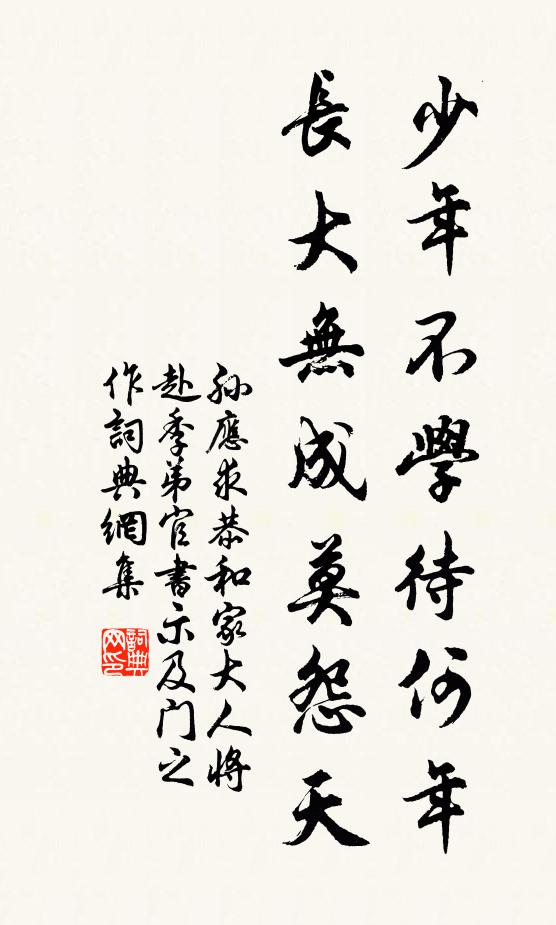 少年不學待何年
長大無成莫怨天
孫應求恭和家大人將
赴季弟官書示及门之
作詞典網集
詞典网印